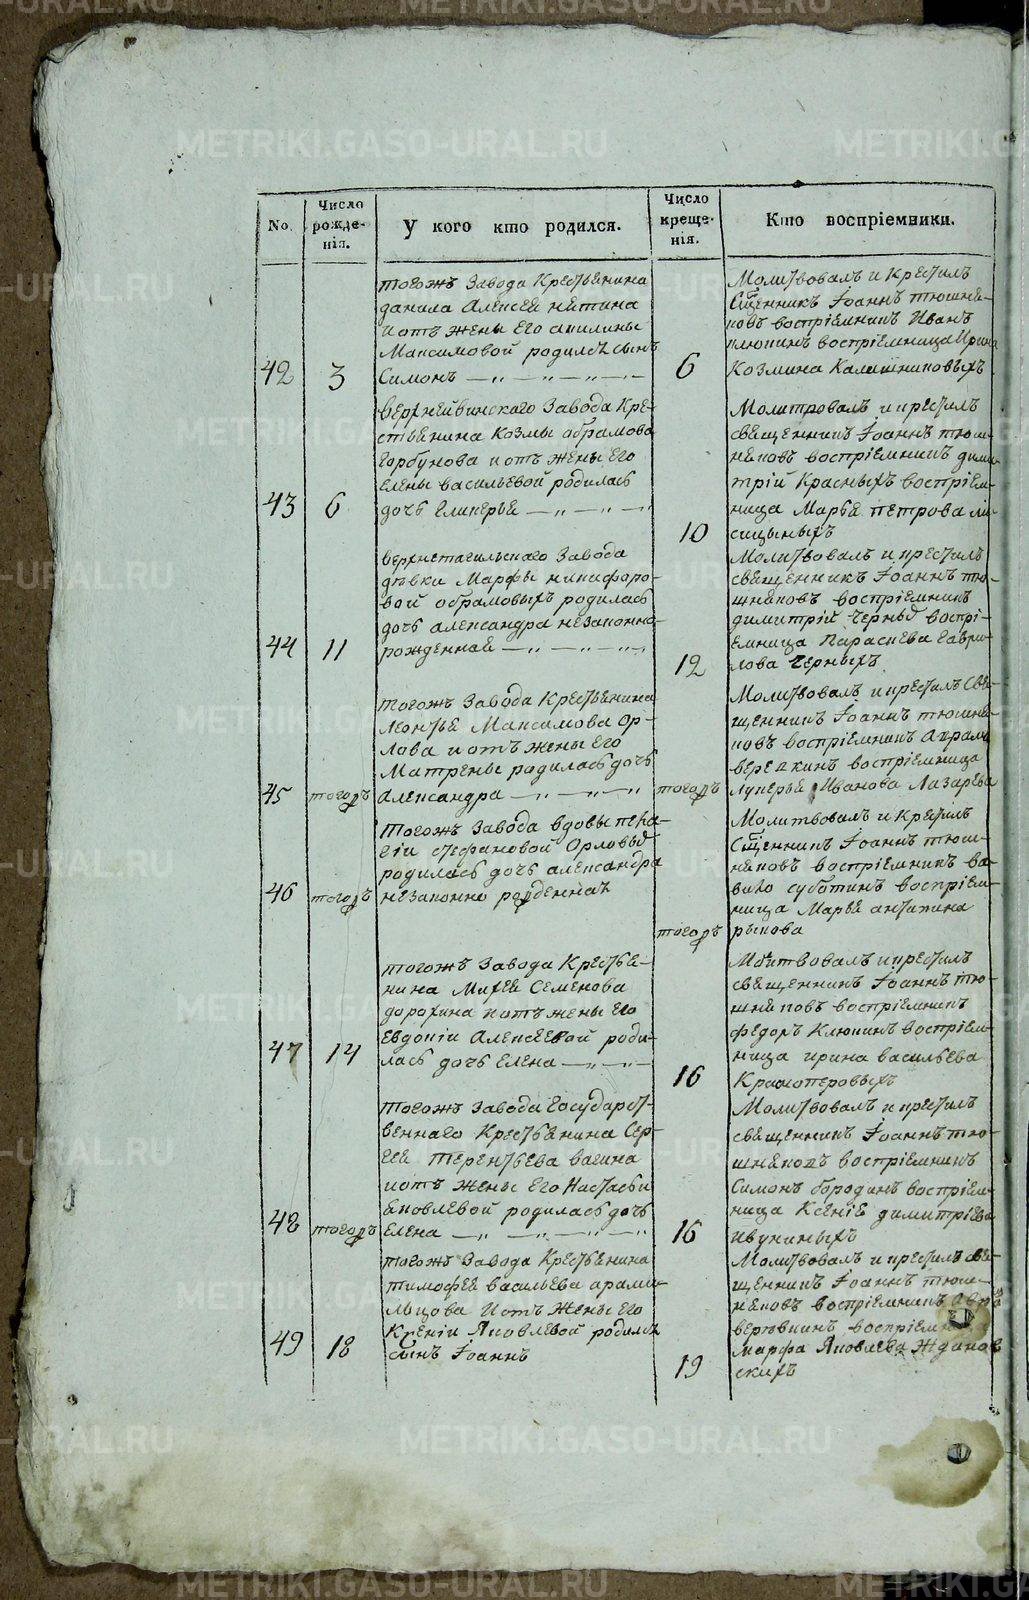 No.
Число рожде-
нія.
У кого кто родился.
Число
креще-
нія.
Кто воспріемники.
42
3
тогожъ Завода Крестьянина
данила Алексея никитина
и отъ жены Его акилины
Максимовой родилсѣ сынъ
Симонъ
6
Молитвовалъ и Крестилъ
Сщенникъ Іоаннъ тюшня-
ковъ воспріемникъ Иванъ
клюкинъ воспріемница Ирина
Козмина Калашниковыхъ
43
6
верхнейвинскаго Завода Кре-
стьянина Козмы абрамова
Горбунова и отъ жены Его
Елены васильевой родилась
дочь Гликерья
10
Молитвовалъ и крестилъ
священникъ Іоаннъ тюш-
няковъ воспріемникъ дими-
трій Красныхъ воспріем-
ница Марья петрова ли-
сицыныхъ
44
11
верхнетагильскаго Завода
дѣвки Марфы никифоро-
вой абрамовыхъ родилась
дочь александра незаконно-
рожденная
12
Молитвовалъ и крестилъ
священникъ Іоаннъ тю-
шняковъ воспріемникъ
димитрій Черныхъ воспрі-
емница Параскева Гаври-
лова Черныхъ
45
тогожъ
тогожъ Завода Крестьянина
Леонтья Максимова Ор-
лова и отъ жены Его
Матрены родилась дочь
Александра
тогожъ
Молитвовалъ и крестилъ Свя-
щенникъ Іоаннъ тюшня-
ковъ воспріемникъ
воспріемница
Лукерья Иванова Лазарева
46
тогожъ
тогожъ Завода вдовы пела-
гіи стефановой Орловыхъ
родилась дочь александра
незаконно рожденная
тогожъ
Молитвовалъ и Крестилъ
Сщенникъ Іоаннъ тюш-
няковъ воспріемникъ ва-
вило суботинъ воспріем-
ница Марья антипина
рыкова
47
14
тогожъ Завода Крестья-
нина Михея Семенова
дорохина и отъ жены Его
Евдокіи Алексеевой роди-
лась дочь Елена
16
Молитвовалъ и крестилъ
священникъ Іоаннъ тю-
шняковъ воспріемникъ
Федоръ Клюкинъ воспріем-
ница ирина васильева
Краснопѣровыхъ
48
тогожъ
тогожъ Завода Государст-
веннаго Крестьянина Сер-
гея терентьева вагина
и отъ жены Его Настасьи
яковлевой родилась дочь
Елена
16
Молитвовалъ и крестилъ
священникъ Іоаннъ тю-
шняковъ воспріемникъ
Симонъ бородинъ воспріем-
ница Ксенія димитріева
ивукиныхъ
49
18
тогожъ Завода Крестьянина
тимофея васильева арами-
льцова И отъ Жены Его
Ксеніи Яковлевой родился
сынъ Іоаннъ
19
Молитвовалъ и крестилъ свя-
щенникъ Іоаннъ тюш-
няковъ воспріемникъ
воспріемница
марфа Яковлева Жданов-
скихъ
METRIKI.GASO-URAL.RU